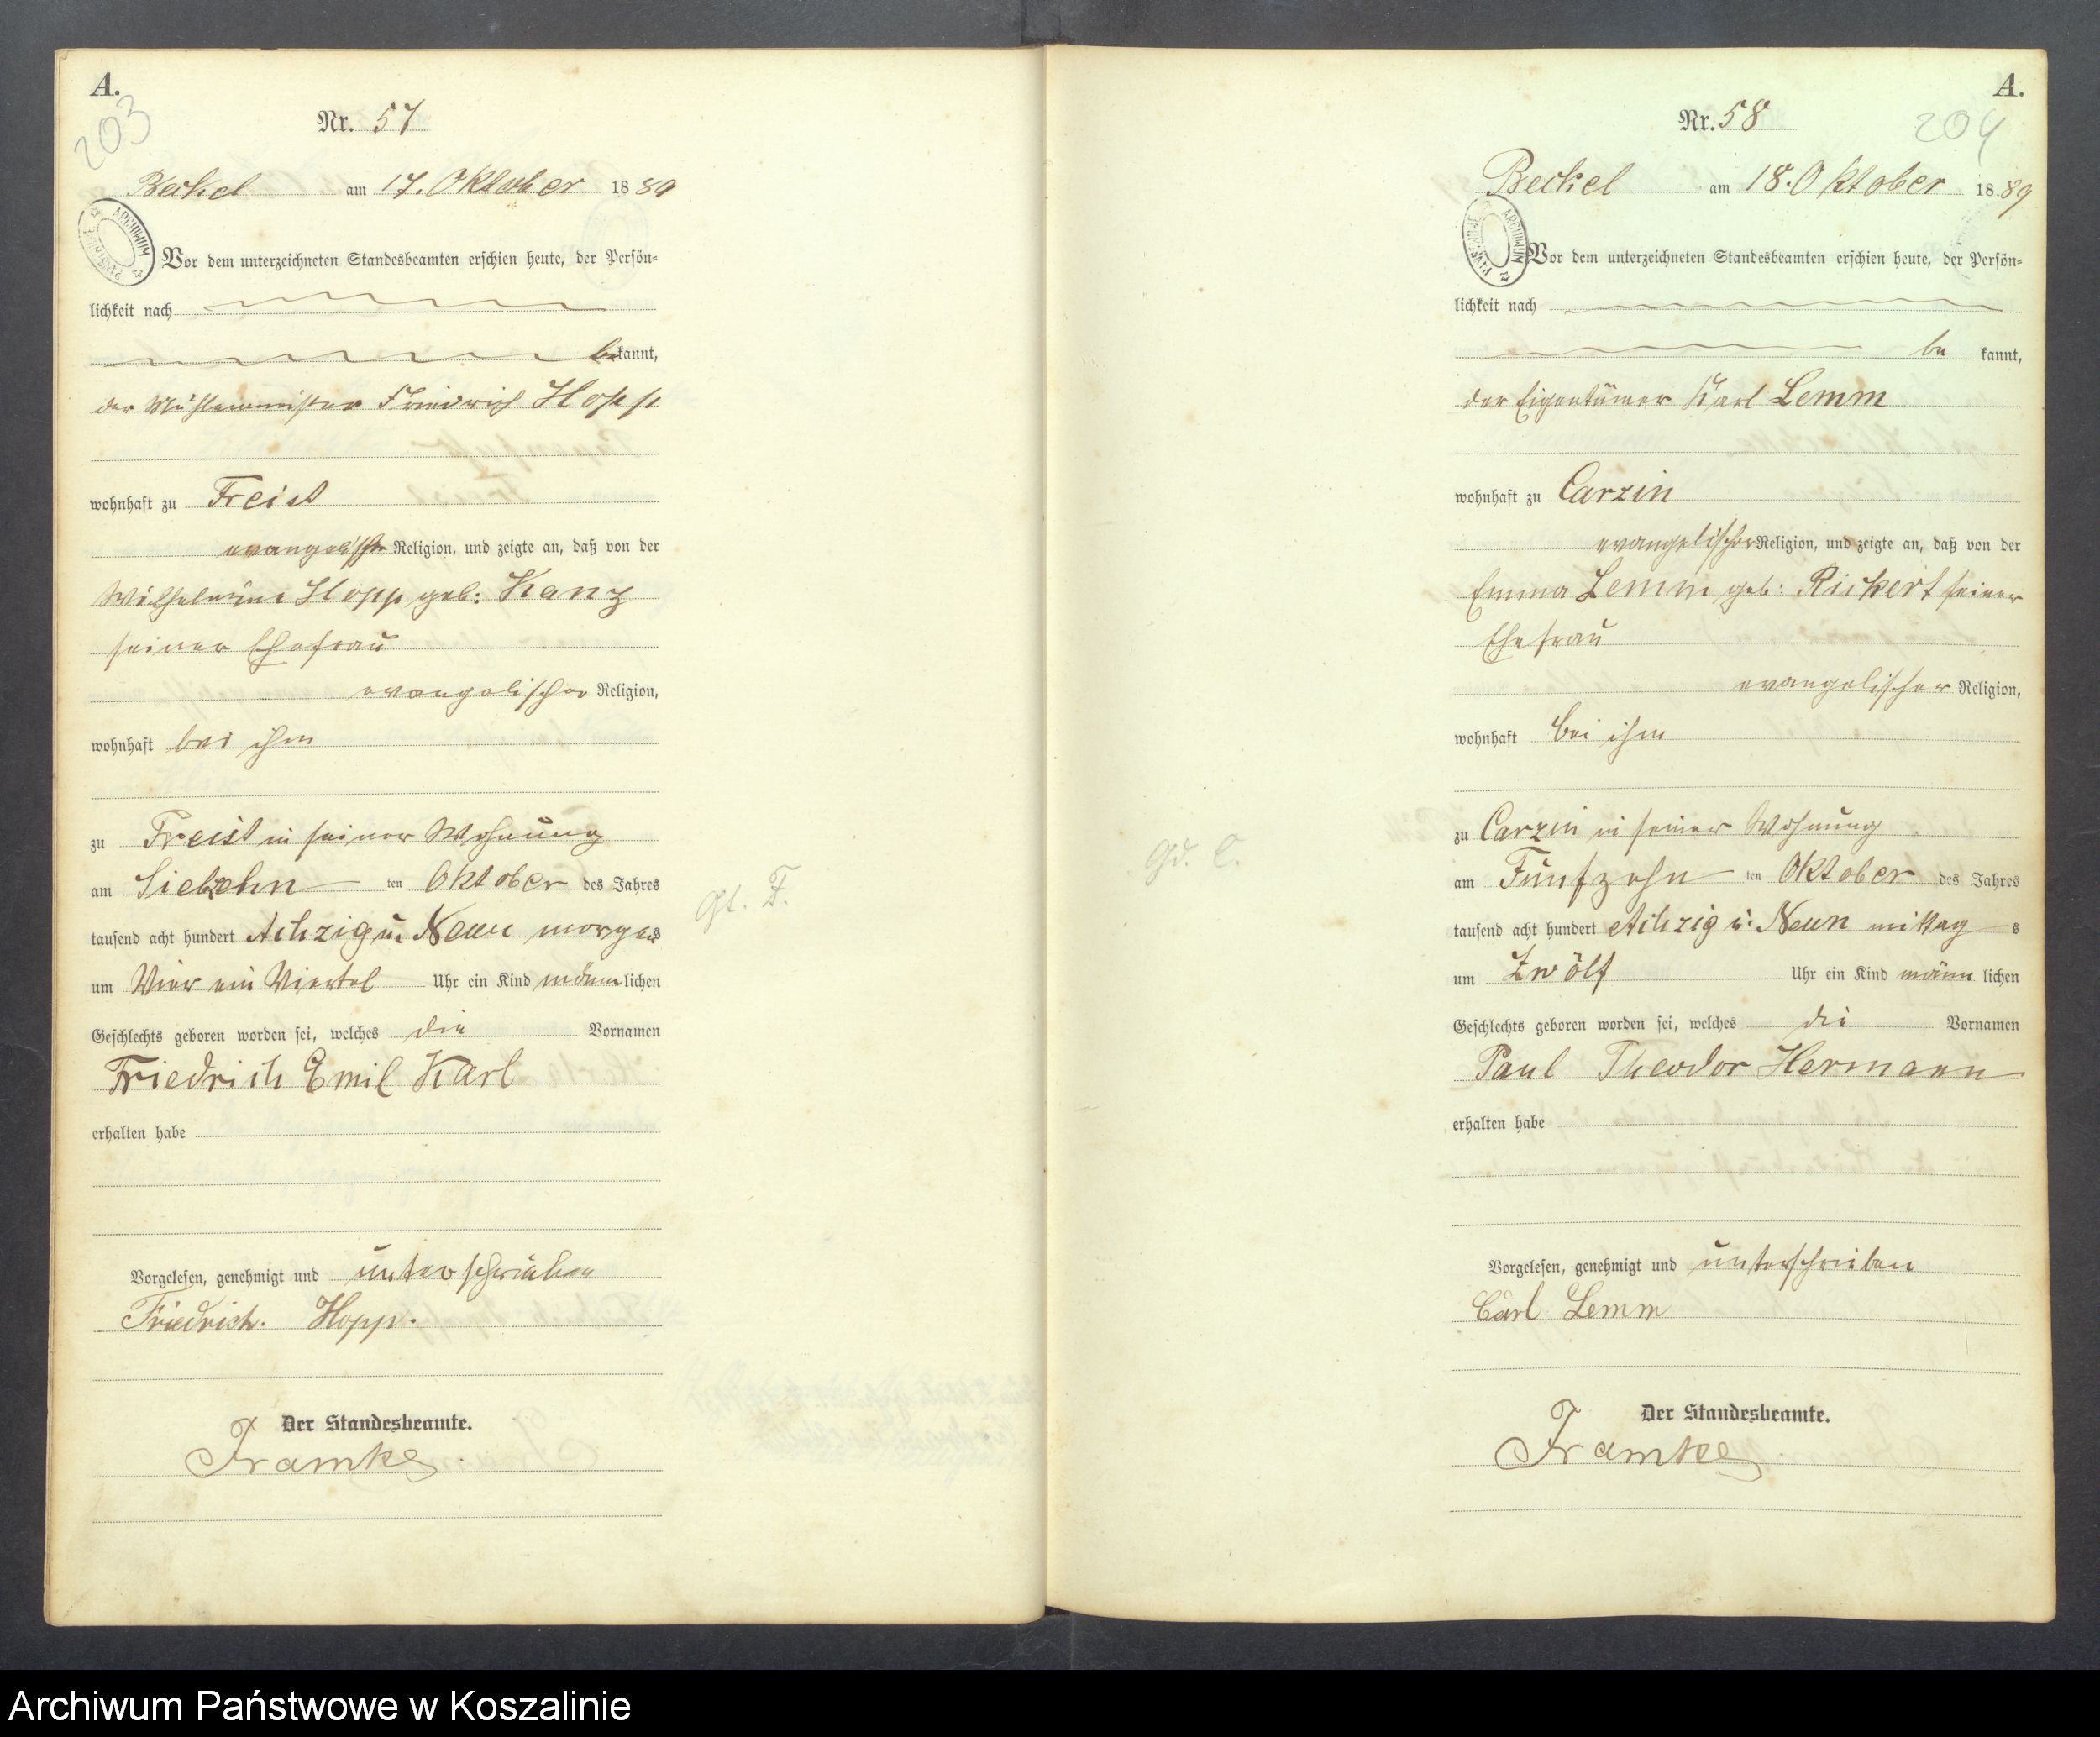 A.
203
Nr. 57
Beckel am 17. Oktober 1889
Vor dem unterzeichneten Standesbeamten erschien heute, der Persön=
lichkeit nach
bekannt,
der Mühlenmeister Friedrich Hopp
wohnhaft zu Freist
evangelischer Religion, und zeigte an, daß von der
Wilhelmine Hopp geb: Kanz
seiner Ehefrau
evangelischer Religion,
wohnhaft bei ihm
zu Freist in seiner Wohnung
am Siebzehn ten Oktober des Jahres
tausend acht hundert Achzig u. Neun morgens
um Vier ein Viertel Uhr ein Kind männlichen
Geschlechts geboren worden sei, welches die Vornamen
Friedrich Emil Karl
erhalten habe
Gt. F.
Vorgelesen, genehmigt und unterschrieben
Friedrich. Hopp.
Der Standesbeamte.
Framke.
A.
204
Nr. 58
Beckel am 18. Oktober 1889
ARCHIWUM PAŃSTWOWE
Vor dem unterzeichneten Standesbeamten erschien heute, der Persön=
lichkeit nach
be kannt,
der Eigentümer Karl Lemm
wohnhaft zu Carzin
evangelischer Religion, und zeigte an, daß von der
Emma Lemm geb: Rickert seiner
Ehefrau
evangelischer Religion,
wohnhaft bei ihm
zu Carzin in seiner Wohnung
am Fünfzehn ten Oktober des Jahres
tausend acht hundert Achzig u: Neun mittags
um Zwölf Uhr ein Kind männlichen
Geschlechts geboren worden sei, welches die Vornamen
Paul Theodor Hermann
erhalten habe
Gd. C.
Vorgelesen, genehmigt und unterschrieben
Carl Lemm
Der Standesbeamte.
Framke
Archiwum Państwowe w Koszalinie